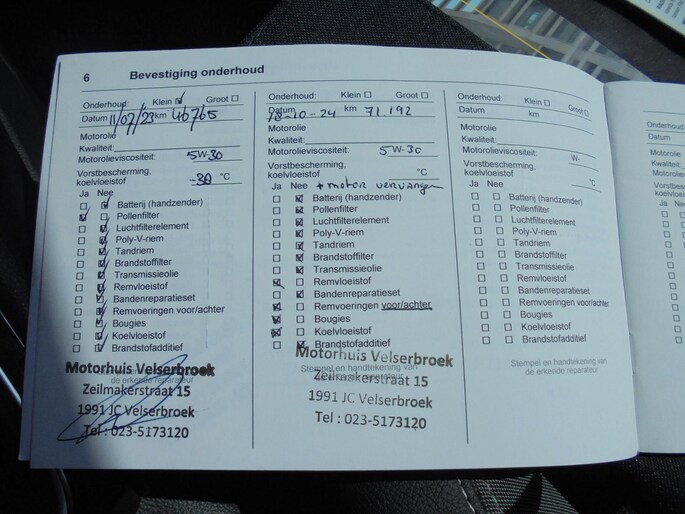 6 Bevestiging onderhoud
Onderhoud: Klein Groot
Datum 11/07/23 km 46765
Motorolie
Kwaliteit:
Motorolieviscositeit: 5W-30
Vorstbescherming,
koelvloeistof -38 °C
Ja Nee
Batterij (handzender)
Pollenfilter
Luchtfilterelement
Poly-V-riem
Tandriem
Brandstoffilter
Transmissieolie
Remvloeistof
Bandenreparatieset
Remvoeringen voor/achter
Bougies
Koelvloeistof
Brandstofadditief
Motorhuis Velserbroek
de erkende reparateur
Zeilmakerstraat 15
1991 JC Velserbroek
Tel : 023-5173120
Onderhoud: Klein Groot
Datum 18-10-24 km 71.192
Motorolie
Kwaliteit:
Motorolieviscositeit: 5W-30
Vorstbescherming,
koelvloeistof °C
Ja Nee + motor vervangen
Batterij (handzender)
Pollenfilter
Luchtfilterelement
Poly-V-riem
Tandriem
Brandstoffilter
Transmissieolie
Remvloeistof
Bandenreparatieset
Remvoeringen voor/achter
Bougies
Koelvloeistof
Brandstofadditief
Motorhuis Velserbroek
Stempel en handtekening van
Zeilmakerstraat 15
1991 JC Velserbroek
Tel : 023-5173120
Onderhoud: Klein Groot
Datum km
Motorolie
Kwaliteit:
Motorolieviscositeit: W-
Vorstbescherming,
koelvloeistof °C
Ja Nee
Batterij (handzender)
Pollenfilter
Luchtfilterelement
Poly-V-riem
Tandriem
Brandstoffilter
Transmissieolie
Remvloeistof
Bandenreparatieset
Remvoeringen voor/achter
Bougies
Koelvloeistof
Brandstofadditief
Stempel en handtekening van
de erkende reparateur
Onderhoud
Datum
Motorolie
Kwaliteit:
koelvloeistof
Ja Nee